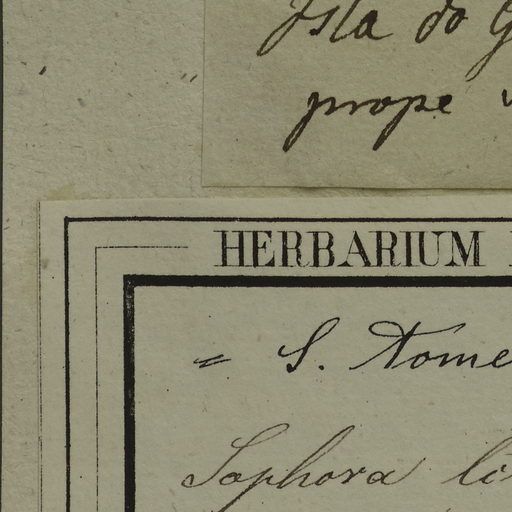 Isla do G
prope
HERBARIUM
= S. Tome
Sophora